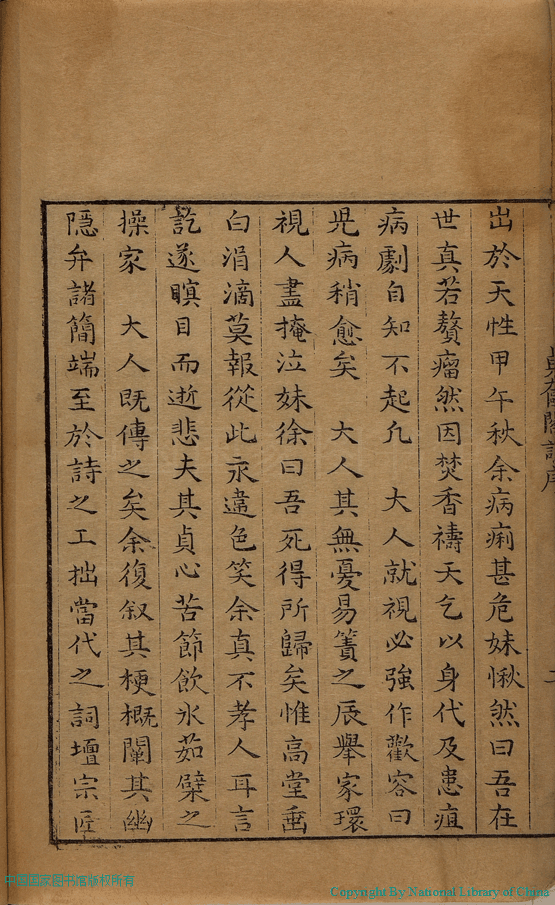 出於天性甲午秋余病痢甚危妹愀然曰吾在
世真若贅瘤然因焚香禱天乞以身代及患疽
病劇自知不起凢　大人就視必強作歡容曰
児病稍愈矣　大人其無憂易簀之辰舉家環
視人盡掩泣妹徐曰吾死得所歸矣惟高堂垂
白涓滴莫報從此永違色笑余真不孝人耳言
訖遂瞑目而逝悲夫其貞心苦節飲氷茹櫱之
操家　大人既傳之矣余復叙其梗概闡其幽
隱弁諸簡端至於詩之工拙當代之詞壇宗匠
中国国家图书馆版权所有
Copyright By National Library of China